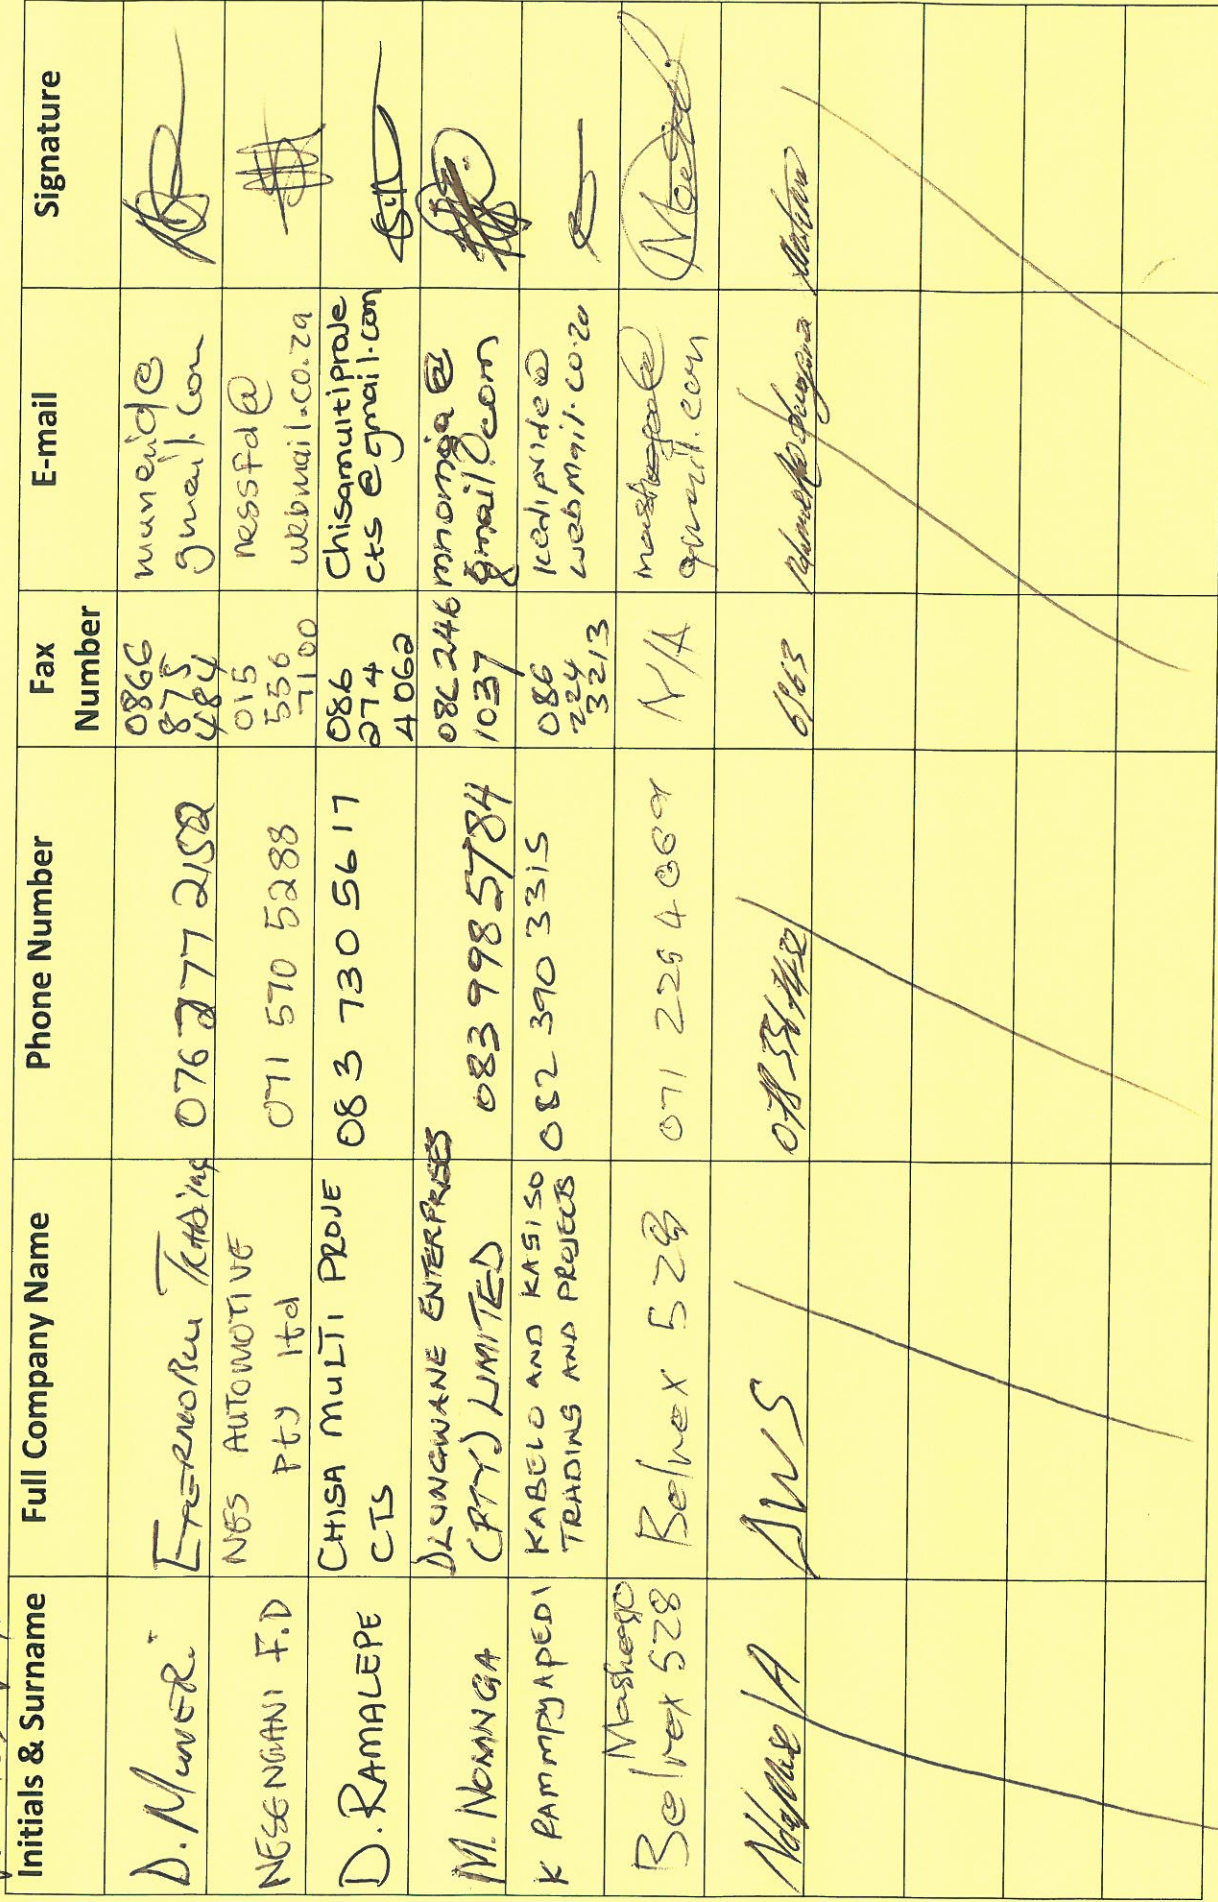 Initials & Surname Full Company Name Phone Number Fax Number E-mail Signature
D. Muneri Trading 076 277 2152 0866 875 484 munerid@ gmail.com
NESENGANI F.D NES AUTOMOTIVE pty ltd 071 570 5288 015 556 7100 nessfd@ webmail.co.za
D. RAMALEPE CHISA MULTI PROJE CTS 083 730 5617 086 274 4062 Chisamultiproje cts@gmail.com
M. NOMNGA DLUNGWANE ENTERPRISES (PTY) LIMITED 083 998 5784 086 246 1037 mnomnga@ gmail.com
K RAMMPYAPEDI KABELO AND KASISO TRADING AND PROJECTS 082 390 3315 086 224 3213 kedipride@ webmail.co.za
Mashego Belrex 528 Belrex 528 071 229 4069 N/A gmail.com
AWS